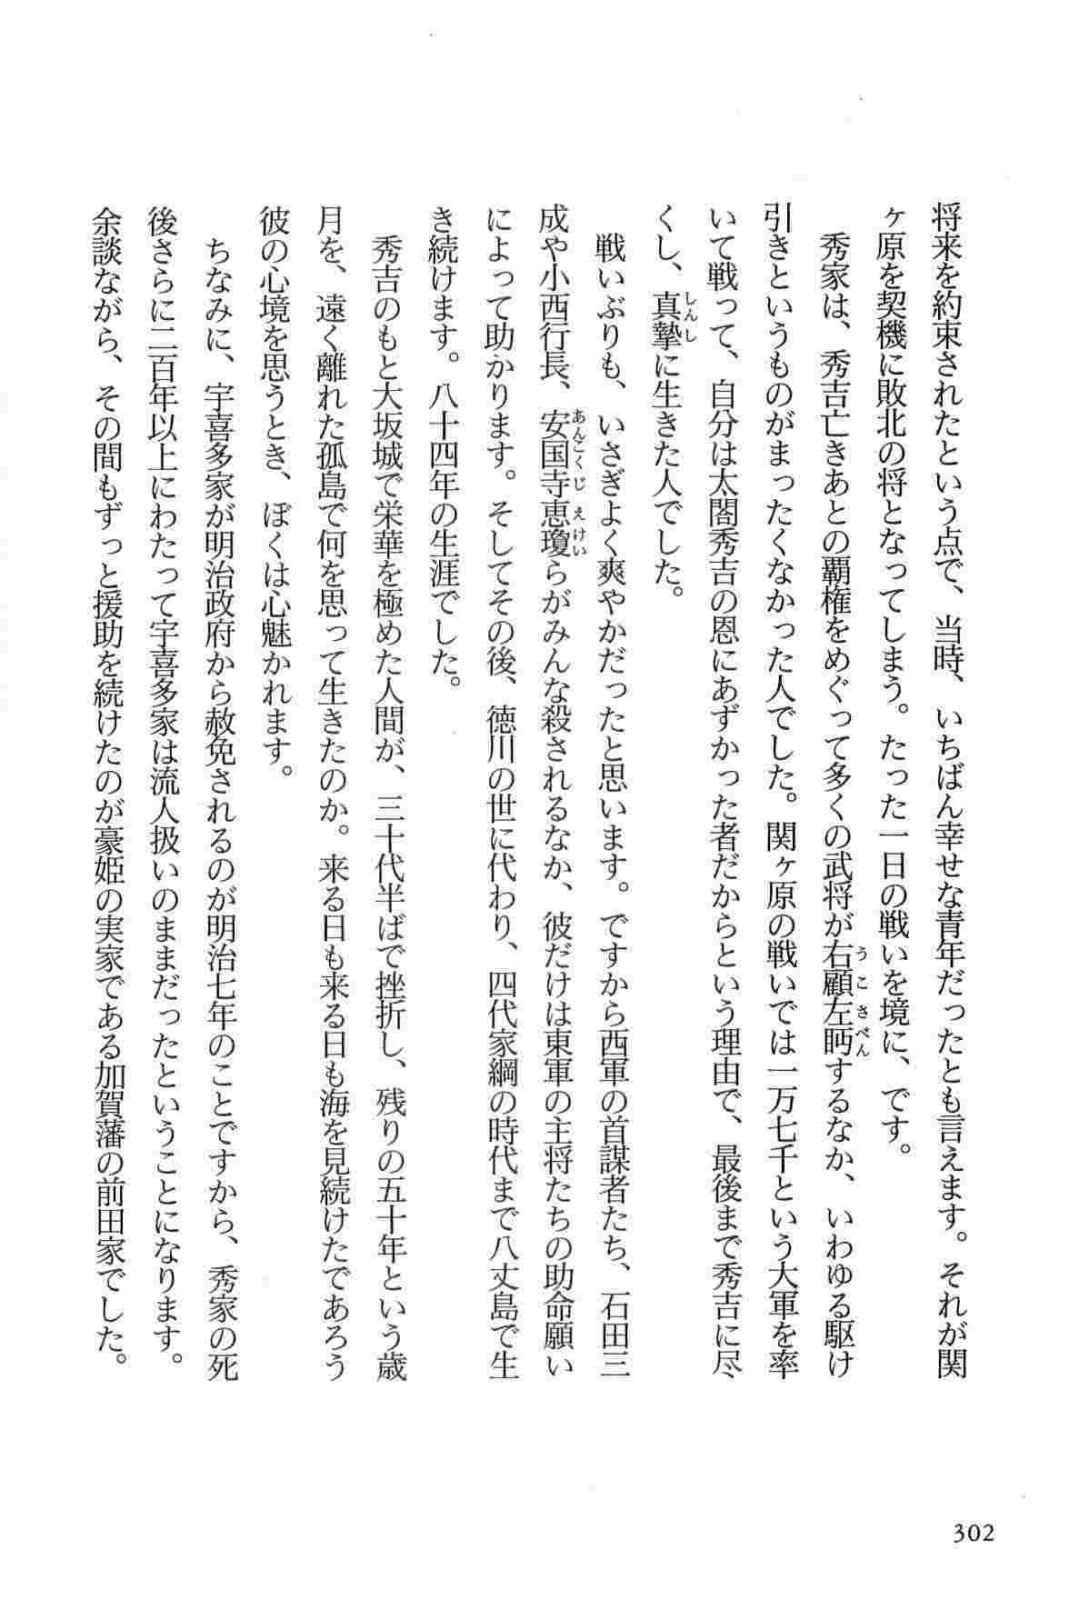 将来を約束されたという点で、当時、いちばん幸せな青年だったとも言えます。それが関
ヶ原を契機に敗北の将となってしまう。たった一日の戦いを境に、です。
秀家は、秀吉亡きあとの覇権をめぐって多くの武将が右顧左眄するなか、いわゆる駆け
引きというものがまったくなかった人でした。関ヶ原の戦いでは一万七千という大軍を率
いて戦って、自分は太閤秀吉の恩にあずかった者だからという理由で、最後まで秀吉に尽
くし、真摯に生きた人でした。
戦いぶりも、いさぎよく爽やかだったと思います。ですから西軍の首謀者たち、石田三
成や小西行長、安国寺恵瓊らがみんな殺されるなか、彼だけは東軍の主将たちの助命願い
によって助かります。そしてその後、徳川の世に代わり、四代家綱の時代まで八丈島で生
き続けます。八十四年の生涯でした。
秀吉のもと大坂城で栄華を極めた人間が、三十代半ばで挫折し、残りの五十年という歳
月を、遠く離れた孤島で何を思って生きたのか。来る日も来る日も海を見続けたであろう
彼の心境を思うとき、ぼくは心魅かれます。
ちなみに、宇喜多家が明治政府から赦免されるのが明治七年のことですから、秀家の死
後さらに二百年以上にわたって宇喜多家は流人扱いのままだったということになります。
余談ながら、その間もずっと援助を続けたのが豪姫の実家である加賀藩の前田家でした。
302